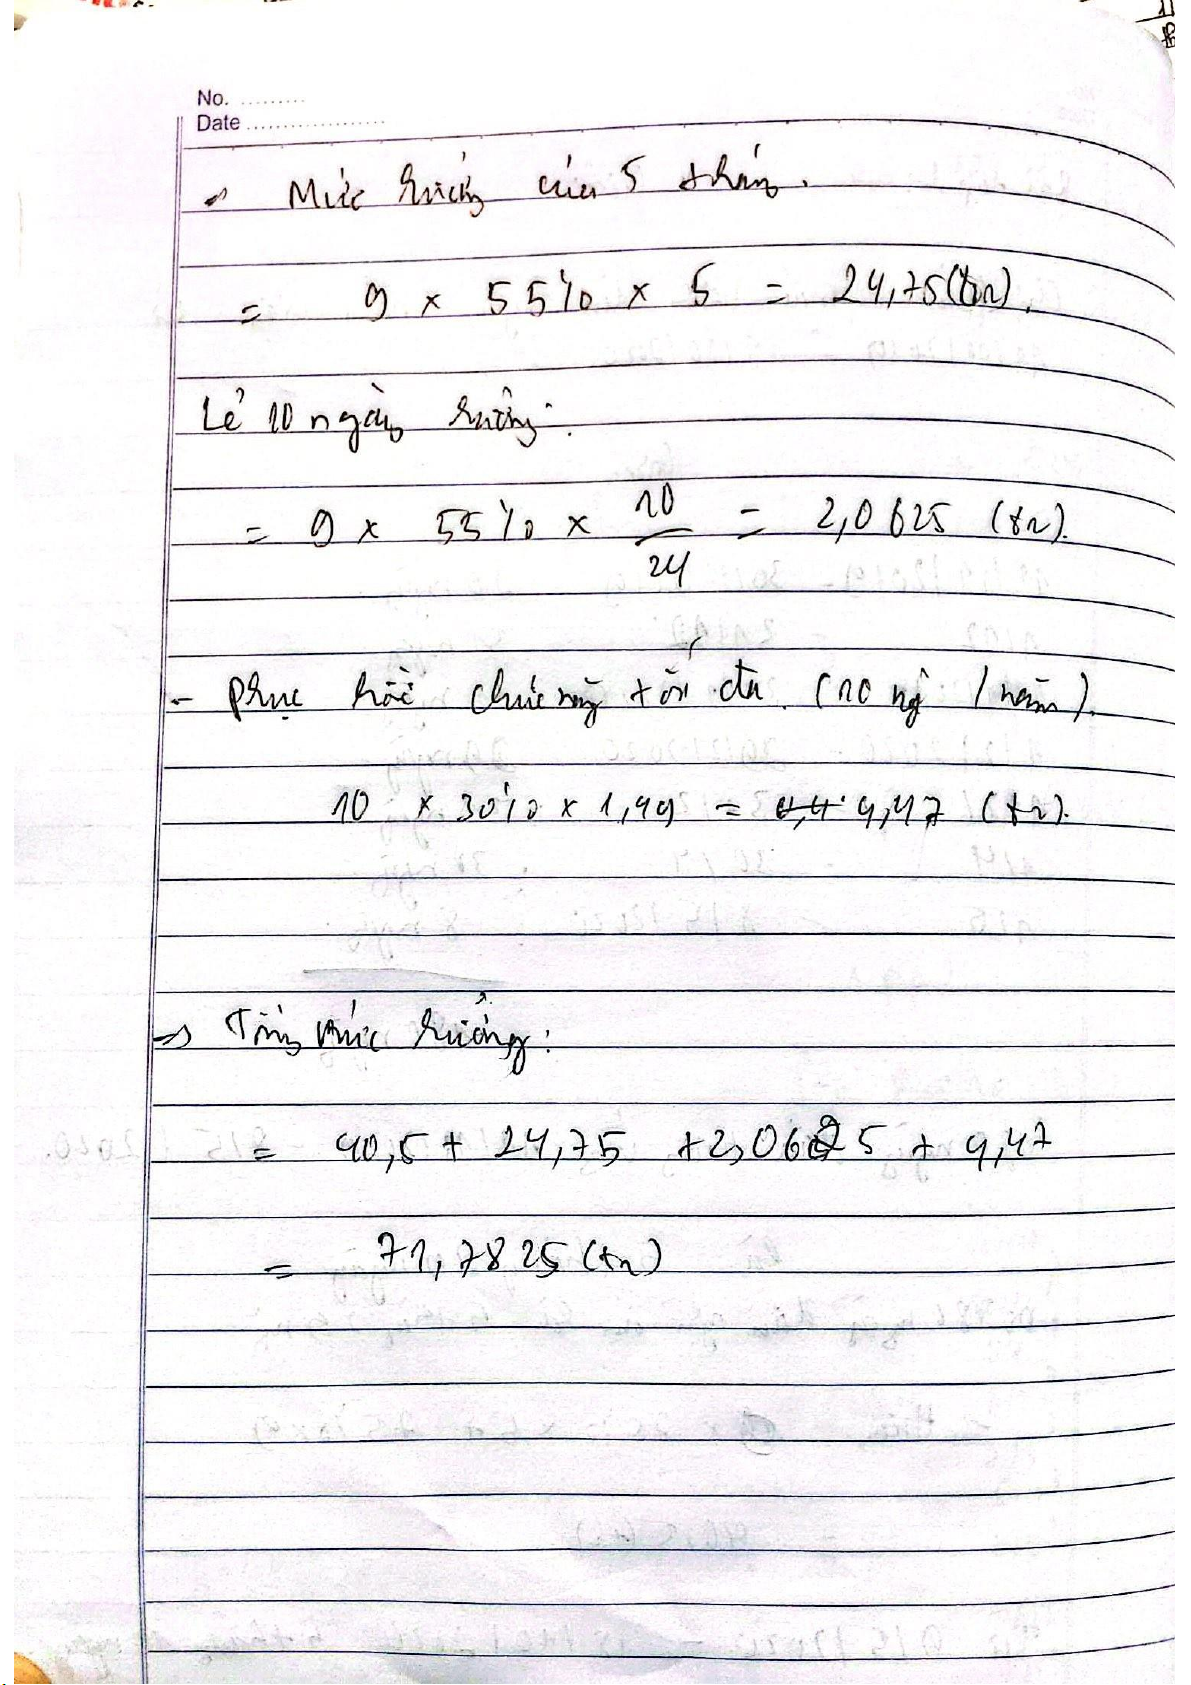 No. .........
Date ...................
→ Mức hưởng của 5 tháng.
= 9 x 55% x 5 = 24,75 (tr).
Lẻ 10 ngày hưởng:
= 9 x 55% x 10/24 = 2,0625 (tr).
- Phục hồi chức năng tối đa (10 ng / năm).
10 x 30% x 1,49 = 4,47 (tr).
=> Tổng mức hưởng:
= 40,5 + 24,75 + 2,0625 + 4,47
= 71,7825 (tr)